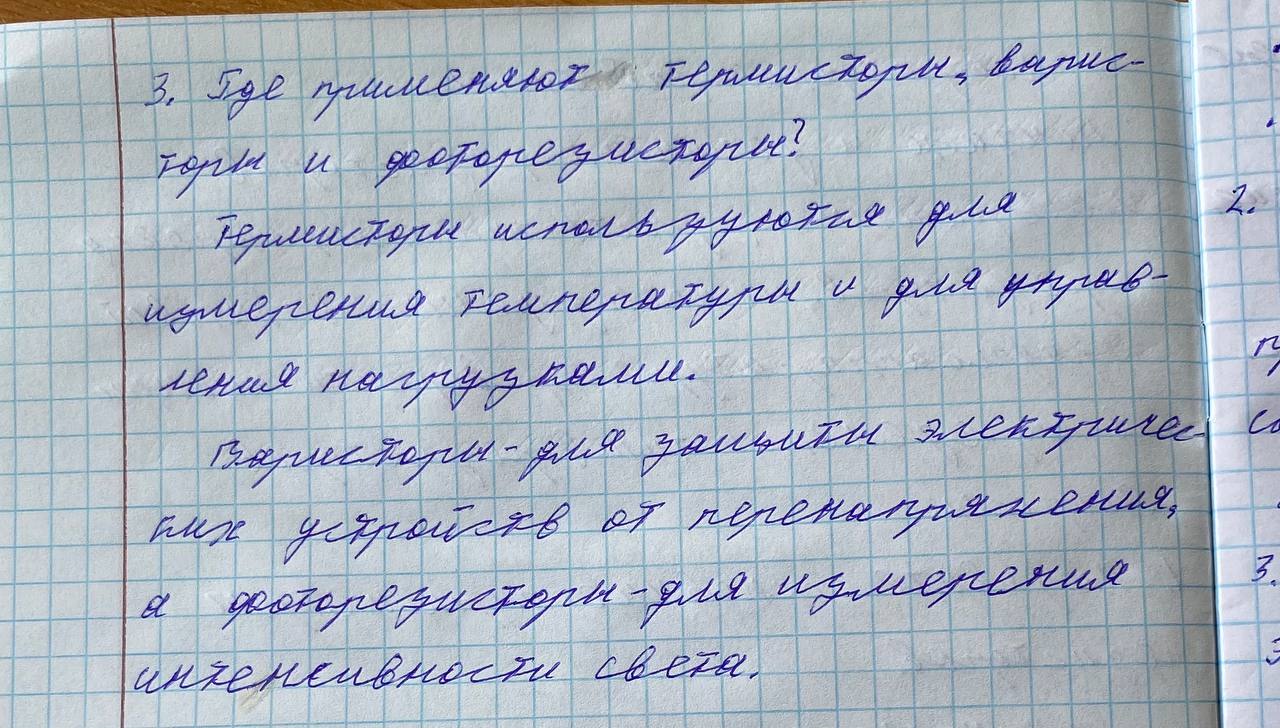 3. Где применяют термисторы, варис-
торы и фоторезисторы?
Термисторы используются для
измерения температуры и для управ-
ления нагрузками.
Варисторы - для защиты электричес-
ких устройств от перенапряжения,
а фоторезисторы - для измерения
интенсивности света.
2.
3.